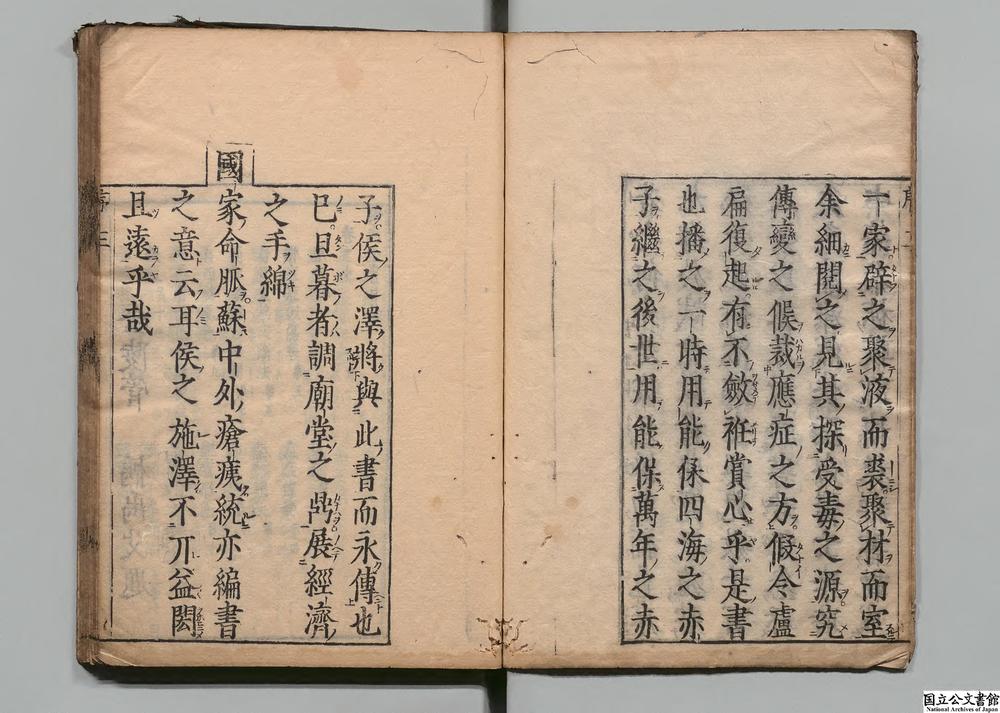 一家辟之聚液而裘聚材而室
余細閱之見其探受毒之源究
傳變之候裁應症之方假令盧
扁復起有不斂袵賞心乎是書
也播之一時用能保四海之赤
子繼之後世用能保萬年之赤
子侯之澤將與此書而永傳也
已旦暮者調廟堂之鼎展經濟
之手綿
國
家命脈蘇中外瘡痍統亦編書
之意云耳侯之施澤不丌益閎
且遠乎哉
序三
国立公文書館
National Archives of Japan